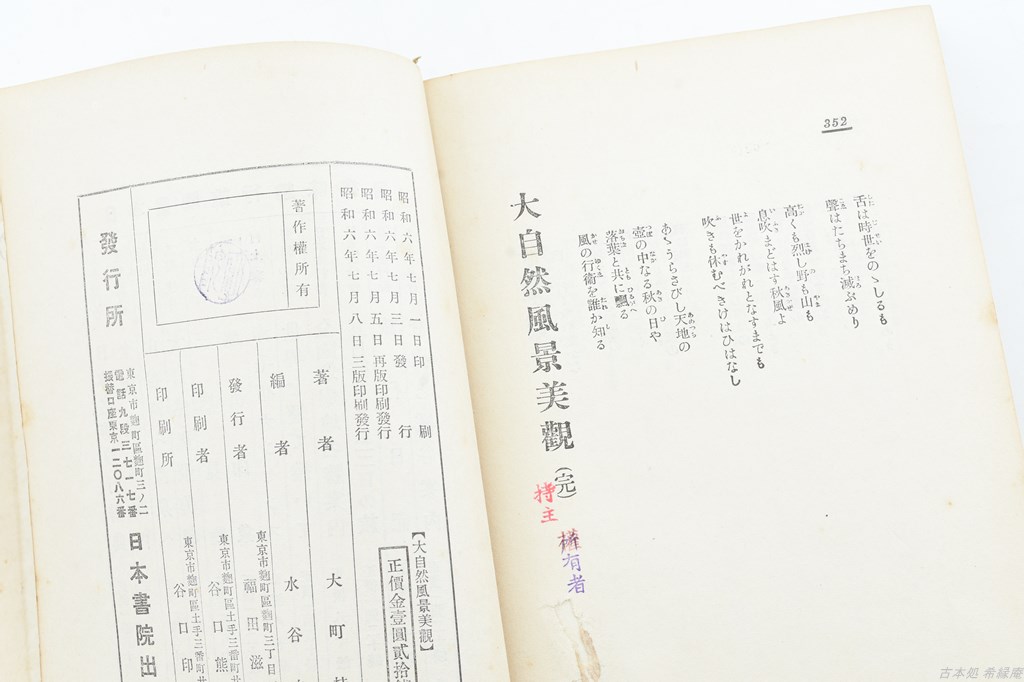 352
舌は時世をのゝしるも
聲はたちまち滅ぶめり
高くも烈し野も山も
息吹まどはす秋風よ
世をかれがれとなすまでも
吹きも休むべきけはひはなし
あゝうらさびし天地の
壺の中なる秋の日や
落葉と共に飄る
風の行衞を誰か知る
大自然風景美觀(完)
持主
權有者
【大自然風景美觀】
正價金壹圓貳拾
昭和六年七月一日印刷
昭和六年七月三日發行
昭和六年七月五日再版印刷發行
昭和六年七月八日三版印刷發行
著作權所有
著者 大町
編者 水谷
發行者 東京市麴町區麴町三丁目 福田滋
印刷者 東京市麴町區土手三番町 谷口熊
印刷所 東京市麴町區土手三番町 谷口印
發行所
東京市麴町區麴町三ノ二
電話九段三七一七番
振替口座東京一二〇八六番
日本書院出
古本処 希縁庵